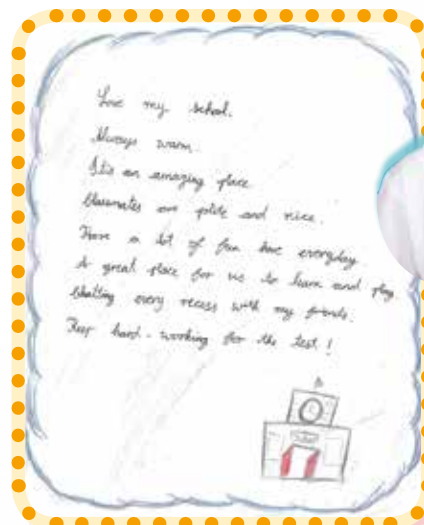 Love my school.
Always warm.
It's an amazing place.
Classmates are polite and nice.
Have a lot of fun here everyday
A great place for us to learn and play.
Chatting every recess with my friends.
Keep hard-working for the test!